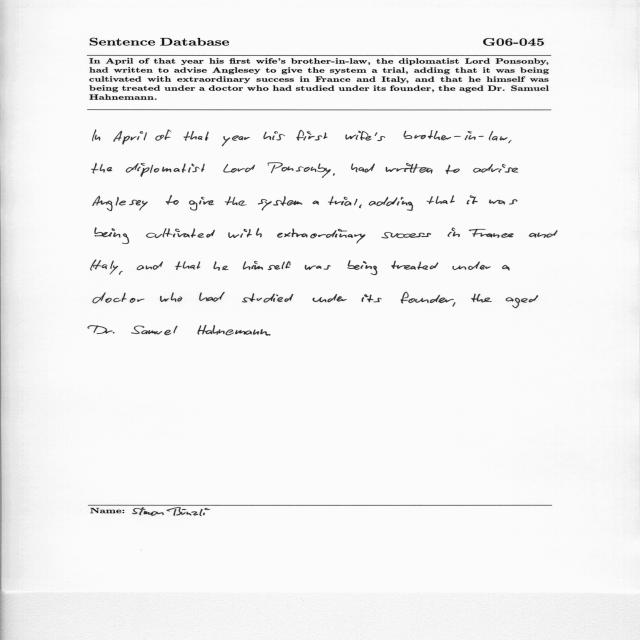 Sentence Database G06-045
In April of that year his first wife's brother-in-law, the diplomatist Lord Ponsonby,
had written to advise Anglesey to give the system a trial, adding that it was being
cultivated with extraordinary success in France and Italy, and that he himself was
being treated under a doctor who had studied under its founder, the aged Dr. Samuel
Hahnemann.
In April of that year his first wife's brother-in-law,
the diplomatist Lord Ponsonby, had written to advise
Anglesey to give the system a trial, adding that it was
being cultivated with extraordinary success in France and
Italy, and that he himself was being treated under a
doctor who had studied under its founder, the aged
Dr. Samuel Hahnemann
Name: Simon Bünzli